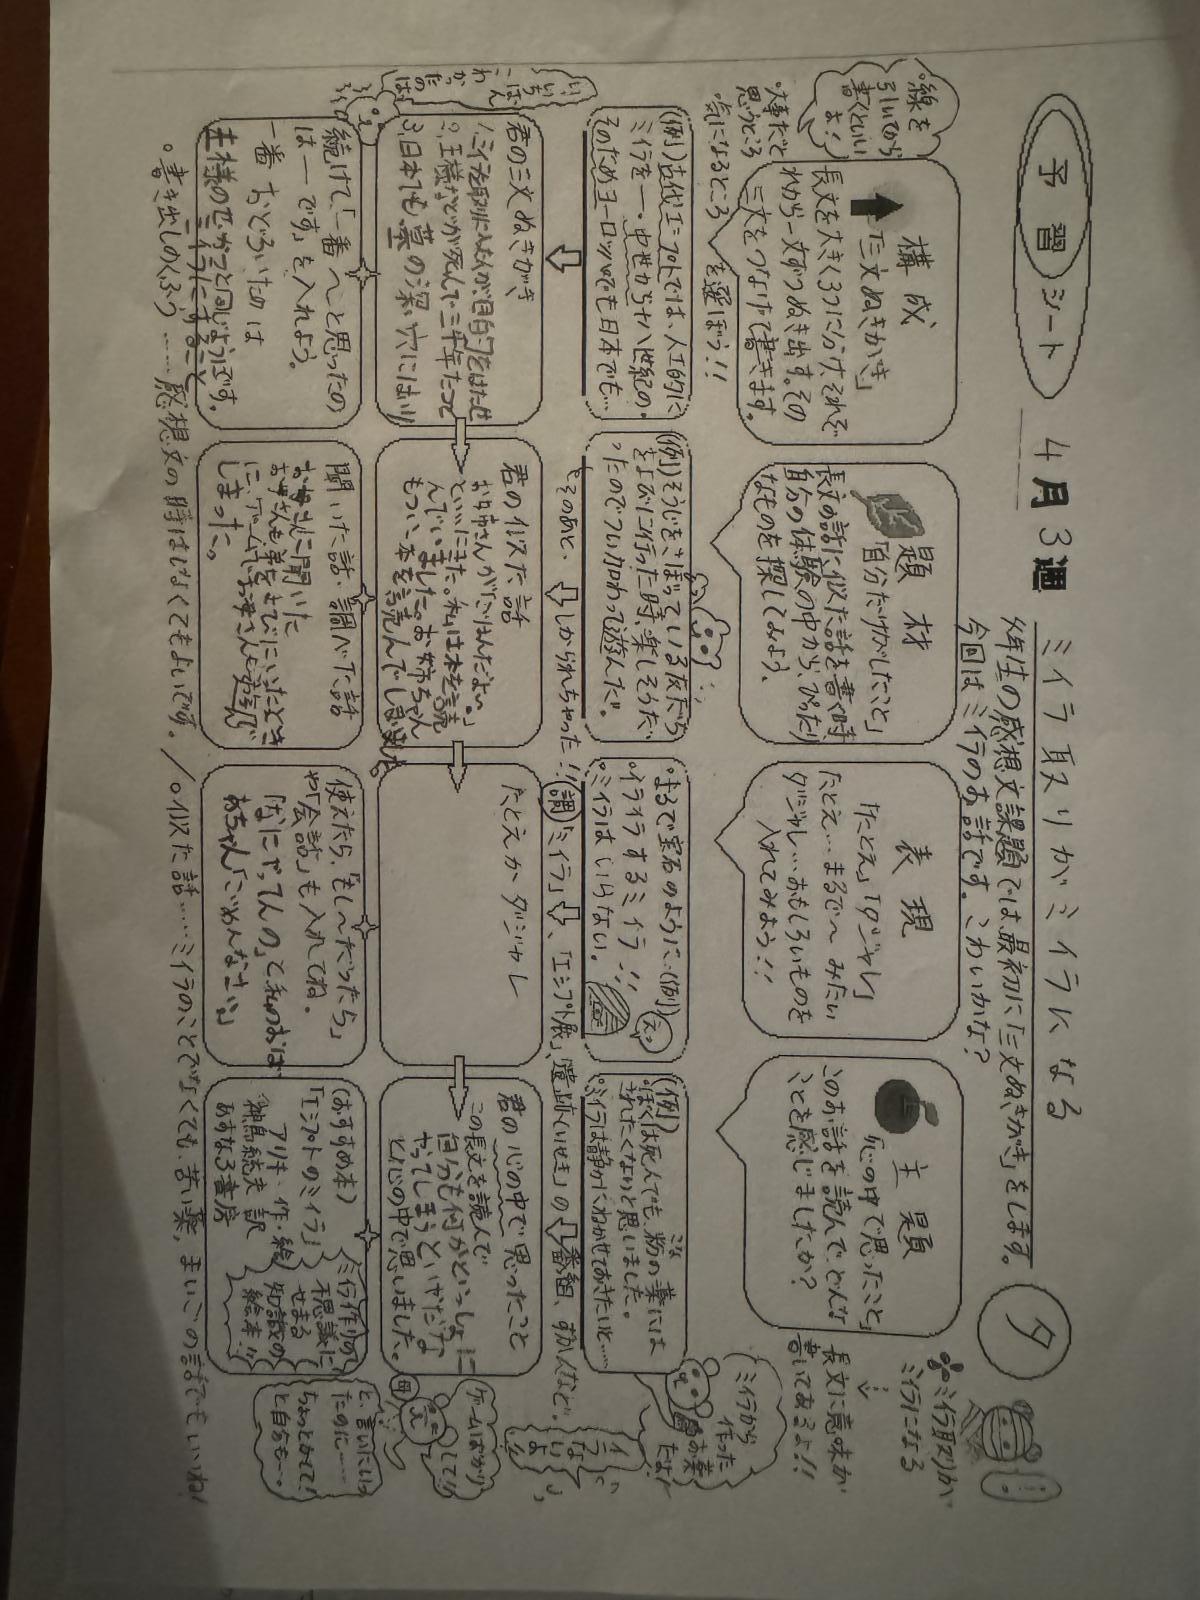 予習シート
4月3週
ミイラ取りがミイラになる
タ
今回はミイラのお話です。こわいかな?
ミイラ取りが
ミイラになる
線を
引いてから
書くといい
よ!
構成
「三文ぬきがき」
長文を大きく3つに分け、それぞ
れから一文ずつぬき出す。その
三文をつなげて書きます。
大事だと
思うところ
気になるところ
を選ぼう!!
題材
「自分だけがしたこと」
長文の話に似た話を書く時
自分の体験の中から、ぴったり
なものを探してみよう。
表現
「たとえ」「ダジャレ」
たとえ…まるで〜みたい
ダジャレ…おもしろいものを
入れてみよう!!
主題
「心の中で思ったこと」
このお話を読んで、どんな
ことを感じましたか?
長文に意味が
書いてあるよ!!
(例)古代エジプトでは、人工的に
ミイラを―。中世から十八世紀の。
そのためヨーロッパでも日本でも…
(例)そうじをさぼっている友だち
をよびに行った時、楽しそうだ
ったのでつい加わって遊んだ。
そのあと、
しかられちゃった!!
まるで宝石のように…(例)
イライラするミイラ!!
ミイラはいらない。
(例)
ぼくは死んでも、粉の薬には
されたくないと思いました。
ミイラは静かにねかせておきたいと……
ミイラから
作った
お薬
だよ!
調
「ミイラ」
、「エジプト展」、遺跡(いせき)の
番組、ずかんなど。
君の三文ぬきがき
2.王様などが死んで三千年たって
3.日本でも墓の深い穴にはい
君の似た話
お姉さんが「ごはんだよ。」
といいにきた。私は本を読
んでいました。お姉ちゃん
もつい、本を読んでしまいました。
たとえかダジャレ
君の心の中で思ったこと
この長文を読んで
自分も何かといっしょに
やってしまうといやだな
と心の中で思いました。
いちばん
こわ
かっ
たの
は
続けて「一番〜と思ったの
は―です」を入れよう。
一番おどろいたのは
聞いた話・調べた話
お母さんに聞いた
お母さんも弟をよびにいったとき
に、ゲームでお母さんも遊んで
しまった。
使えたら、「もし〜だったら」
や「会話」も入れてね。
「なにやってんの」と私のおば
あちゃん「ごめんなさい」
(おすすめ本)
「エジプトのミイラ」
アリキ・作・絵
神鳥統夫 訳
あすなろ書房
ミイラ作りの
不思議に
せまる
知識の
絵本!!
ゲームばかり
して!!
母
と、言いにいっ
たのに……
ちょっとかして!
と自分も…。
。書き出しのくふう……感想文の時はなくてもよいです。/。似た話……ミイラのことでなくても、苦い薬、まいごの話でもいいね!